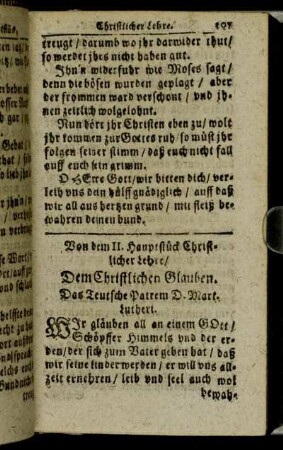 Christlicher Lehre.
treugt / darumb wo jhr darwider thut /
so werdet jhrs nicht haben gut.
Ihn'n widerfuhr wie Moses sagt /
denn die bösen wurden geplagt / aber
der frommen ward verschont / vnd jh-
nen zeitlich wolgelohnt.
Nun hört jhr Christen eben zu / wolt
jhr kommen zur Gottes ruh / so müst jhr
folgen seiner stimm / daß euch nicht fall
auff euch sein grimm.
O HErre Gott / wir bitten dich / ver-
leih vns dein hülff gnädiglich / auff daß
wir all aus hertzen grund / mit fleiß be-
wahren deinen bund.
Von dem II. Hauptstück Christ-
licher Lehre /
Dem Christlichen Glauben.
Das Teutsche Patrem D. Mart.
Lutheri.
WIr gläuben all an einem GOtt /
Schöpffer Himmels vnd der er-
den / der sich zum Vater geben hat / daß
wir seine kinder werden / er will vns all-
zeit ernehren / leib vnd seel auch wol
bewah-